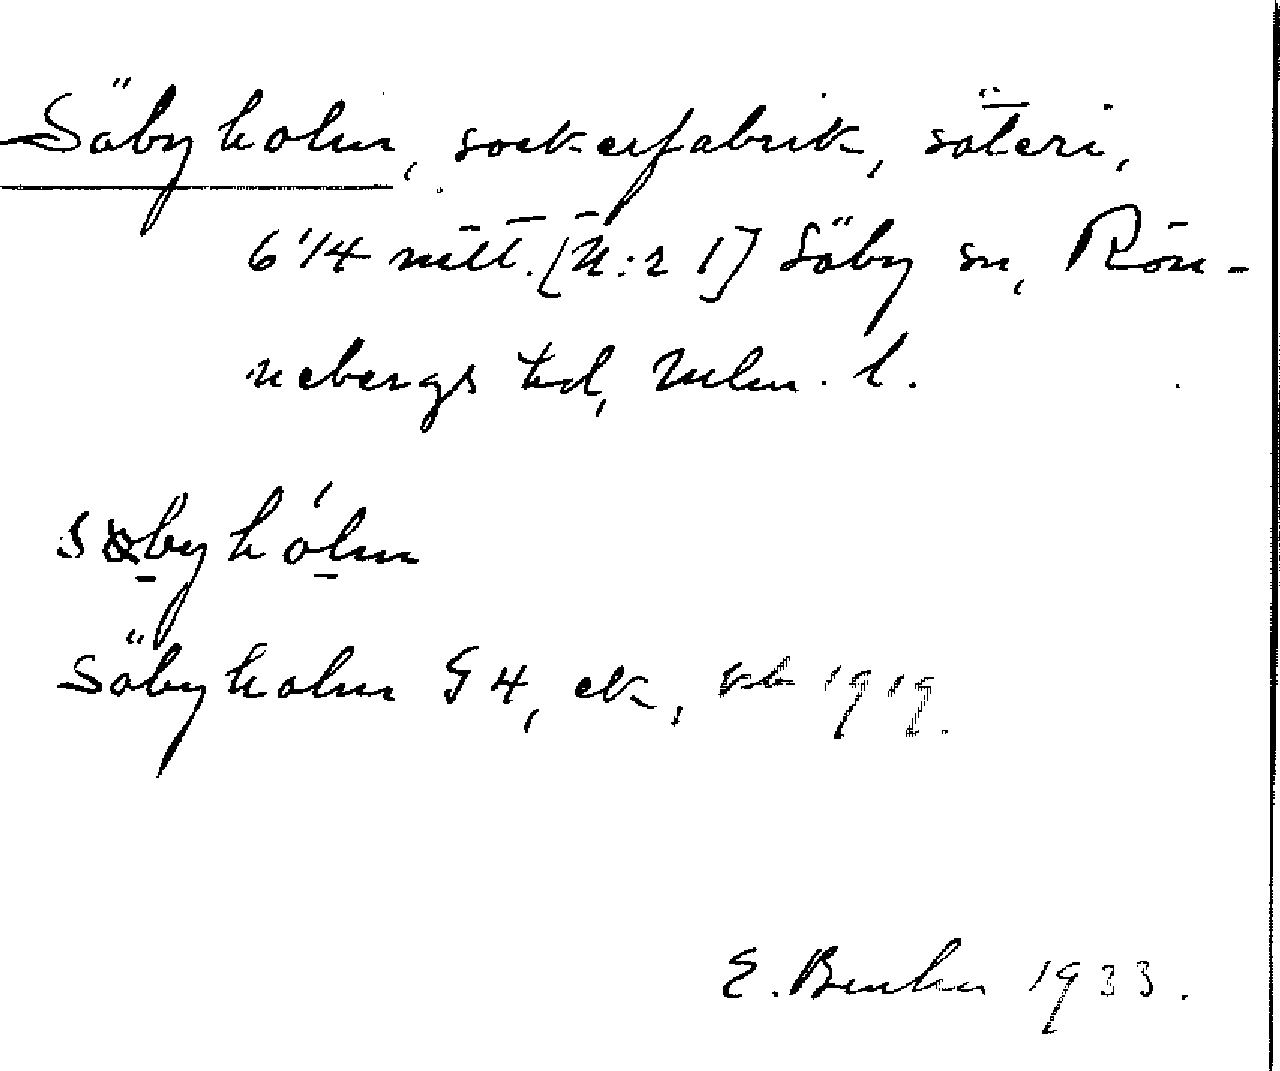 Säbyholm, sockerfabrik, säteri,
6 1/4 mtl. [N:r 1] Säby sn, Rön-
nebergs hd, Mlm. l.
sàbyhólm
Säbyholm G4, ek, 1919.
E. 1933.